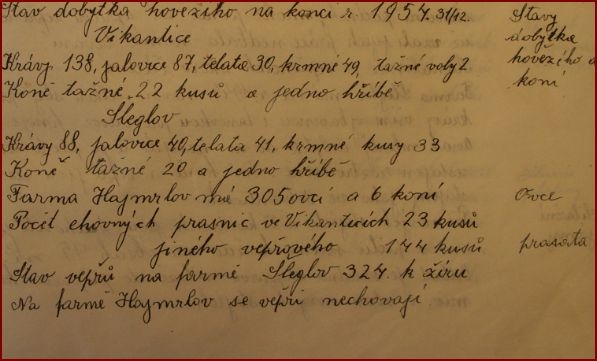 Stav dobytka hovězího na konci r. 1957. 31/12.
Vikantice
Krávy 138, jalovice 87, telata 30, krmné 49, tažné voly 2
Koně tažné 22 kusů a jedno hříbě
Šléglov
Krávy 88, jalovice 40, telata 41, krmné kusy 33
Koně tažné 20 a jedno hříbě
Farma Hajmrlov má 305 ovcí a 6 koní
Počet chovných prasnic ve Vikanticích 23 kusů
jiného vepřového 144 kusů
Stav vepřů na farmě Šléglov 324 k žíru
Na farmě Hajmrlov se vepři nechovají
Stavy
dobytka
hovězího a
koní
Ovce
prasata